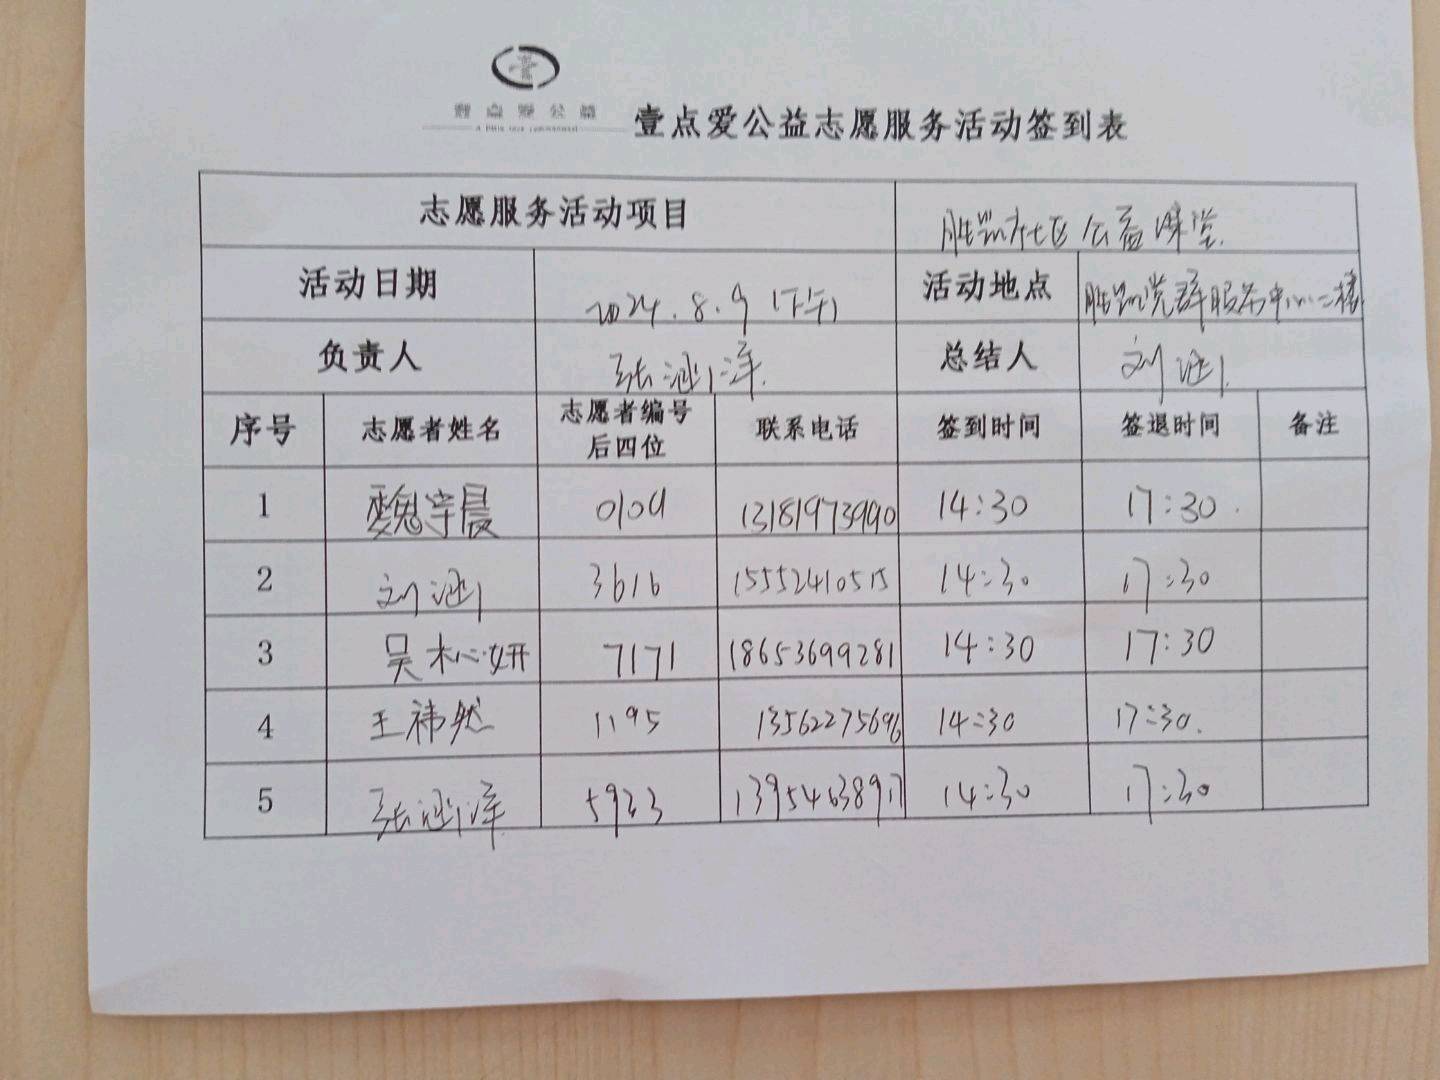 壹点爱公益
壹点爱公益志愿服务活动签到表
志愿服务活动项目 胜凯社区公益课堂
活动日期 2024.8.9(下午) 活动地点 胜凯党群服务中心二楼
负责人 张涵泽 总结人 刘涵
序号 志愿者姓名 志愿者编号后四位 联系电话 签到时间 签退时间 备注
1 魏宇晨 0109 13181973990 14:30 17:30
2 刘涵 3616 15552410515 14:30 17:30
3 吴杺妍 7171 18653699281 14:30 17:30
4 王祎然 1195 13562275696 14:30 17:30
5 张涵泽 5923 13954638917 14:30 17:30